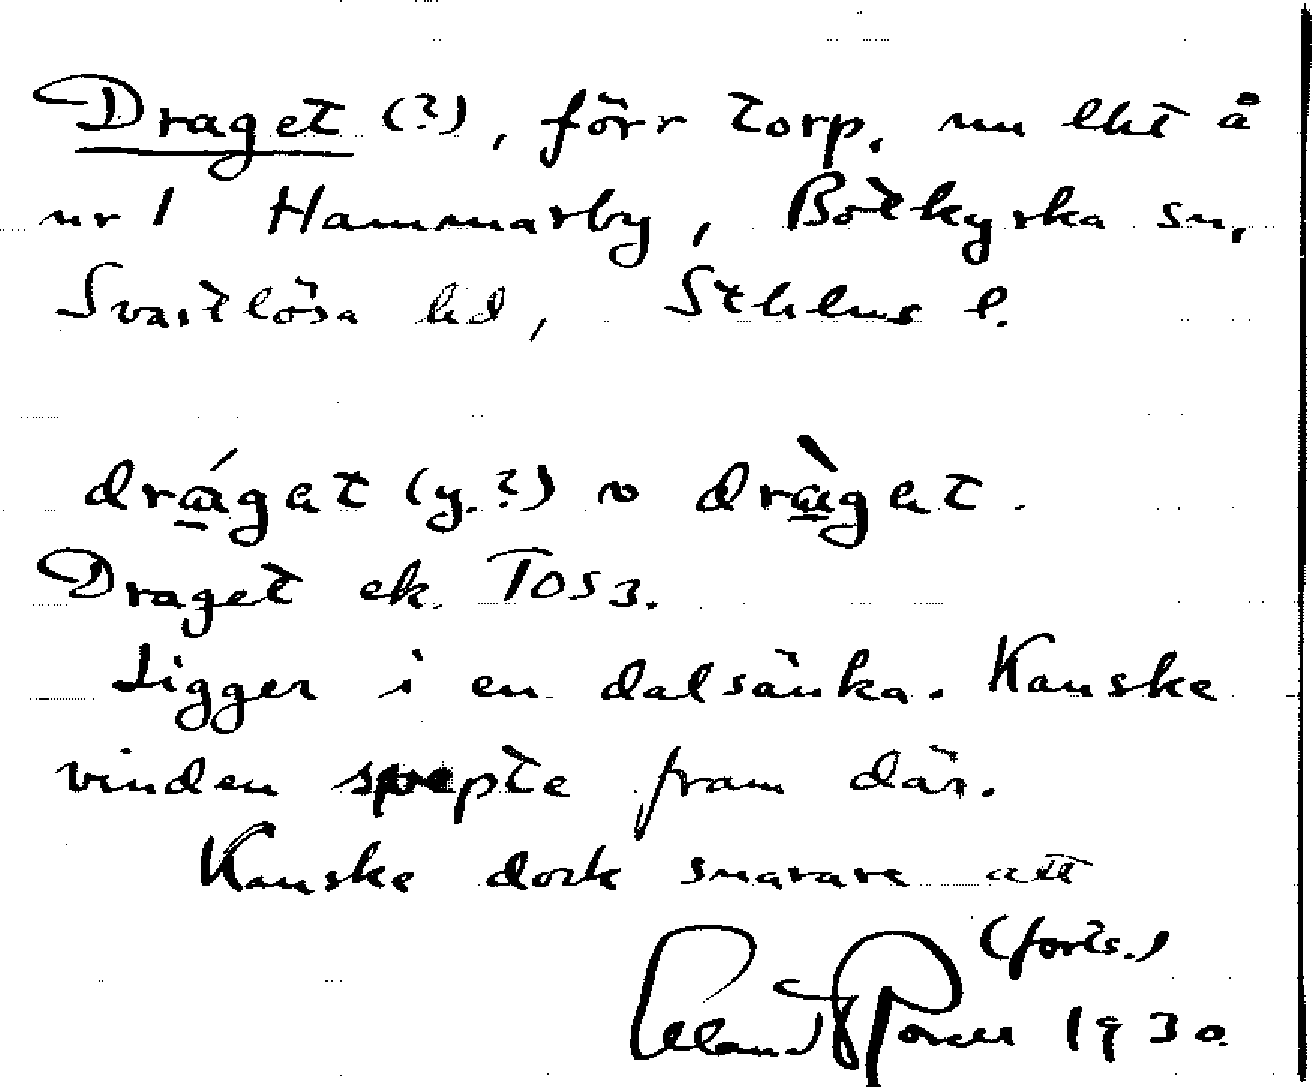 Draget (?), förr torp, nu lht å
nr 1 Hammarby, Botkyrka sn,
Svartlösa hd, Sthlms l.
drágat (y.?) ~ dràgat.
Draget ek. TOS3.
Ligger i en dalsänka. Kanske
vinden svepte fram där.
Kanske dock snarare att
(forts.)
1930